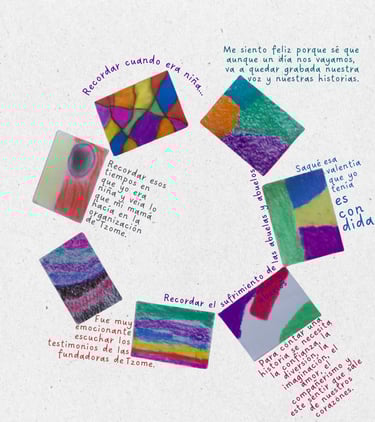 Recordar cuando era niña...
Me siento feliz porque sé que
aunque un día nos vayamos,
va a quedar grabada nuestra
voz y nuestras historias.
Saqué esa
valentía
que yo
tenía
es
con
dida
Para contar una
historia se necesita
la confianza, la
diversión, la
imaginación, el
amor, el
compañerismo y
este sentir que sale
de nuestros
corazones.
Recordar el sufrimiento de las abuelas y abuelos
Fue muy
emocionante
escuchar los
testimonios de las
fundadoras de Tzome.
Recordar esos
tiempos en
que yo era
niña y veía lo
que mi mamá
hacía en la
organización
de Tzome.